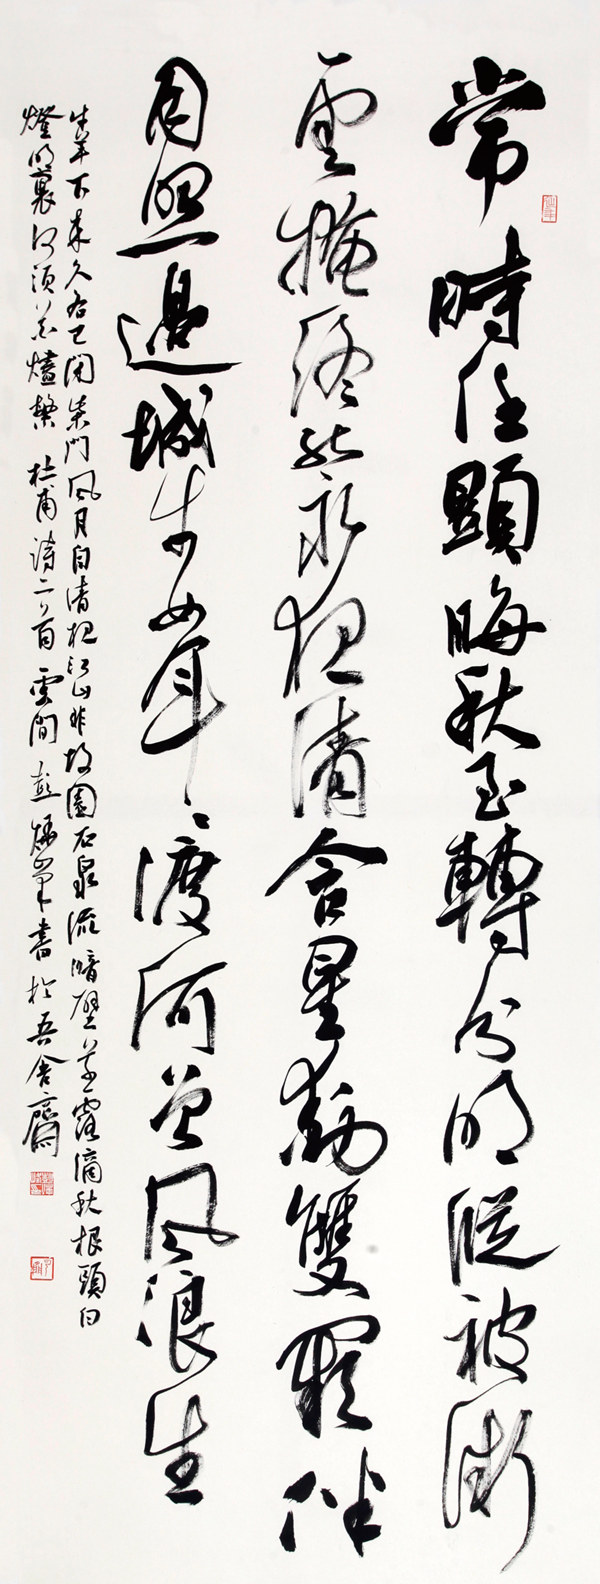 常時任顯晦秋至轉分明縱被微
雲掩終能永夜清含星動雙闕伴
月照邊城牛女年々渡河曾風浪生
牛羊下來久各已閉柴門風月自清夜江山非故園石泉流暗壁草露滴秋根頭白
燈明裏何須花燼繁 杜甫詩二首 雲間 書於吾舍齋